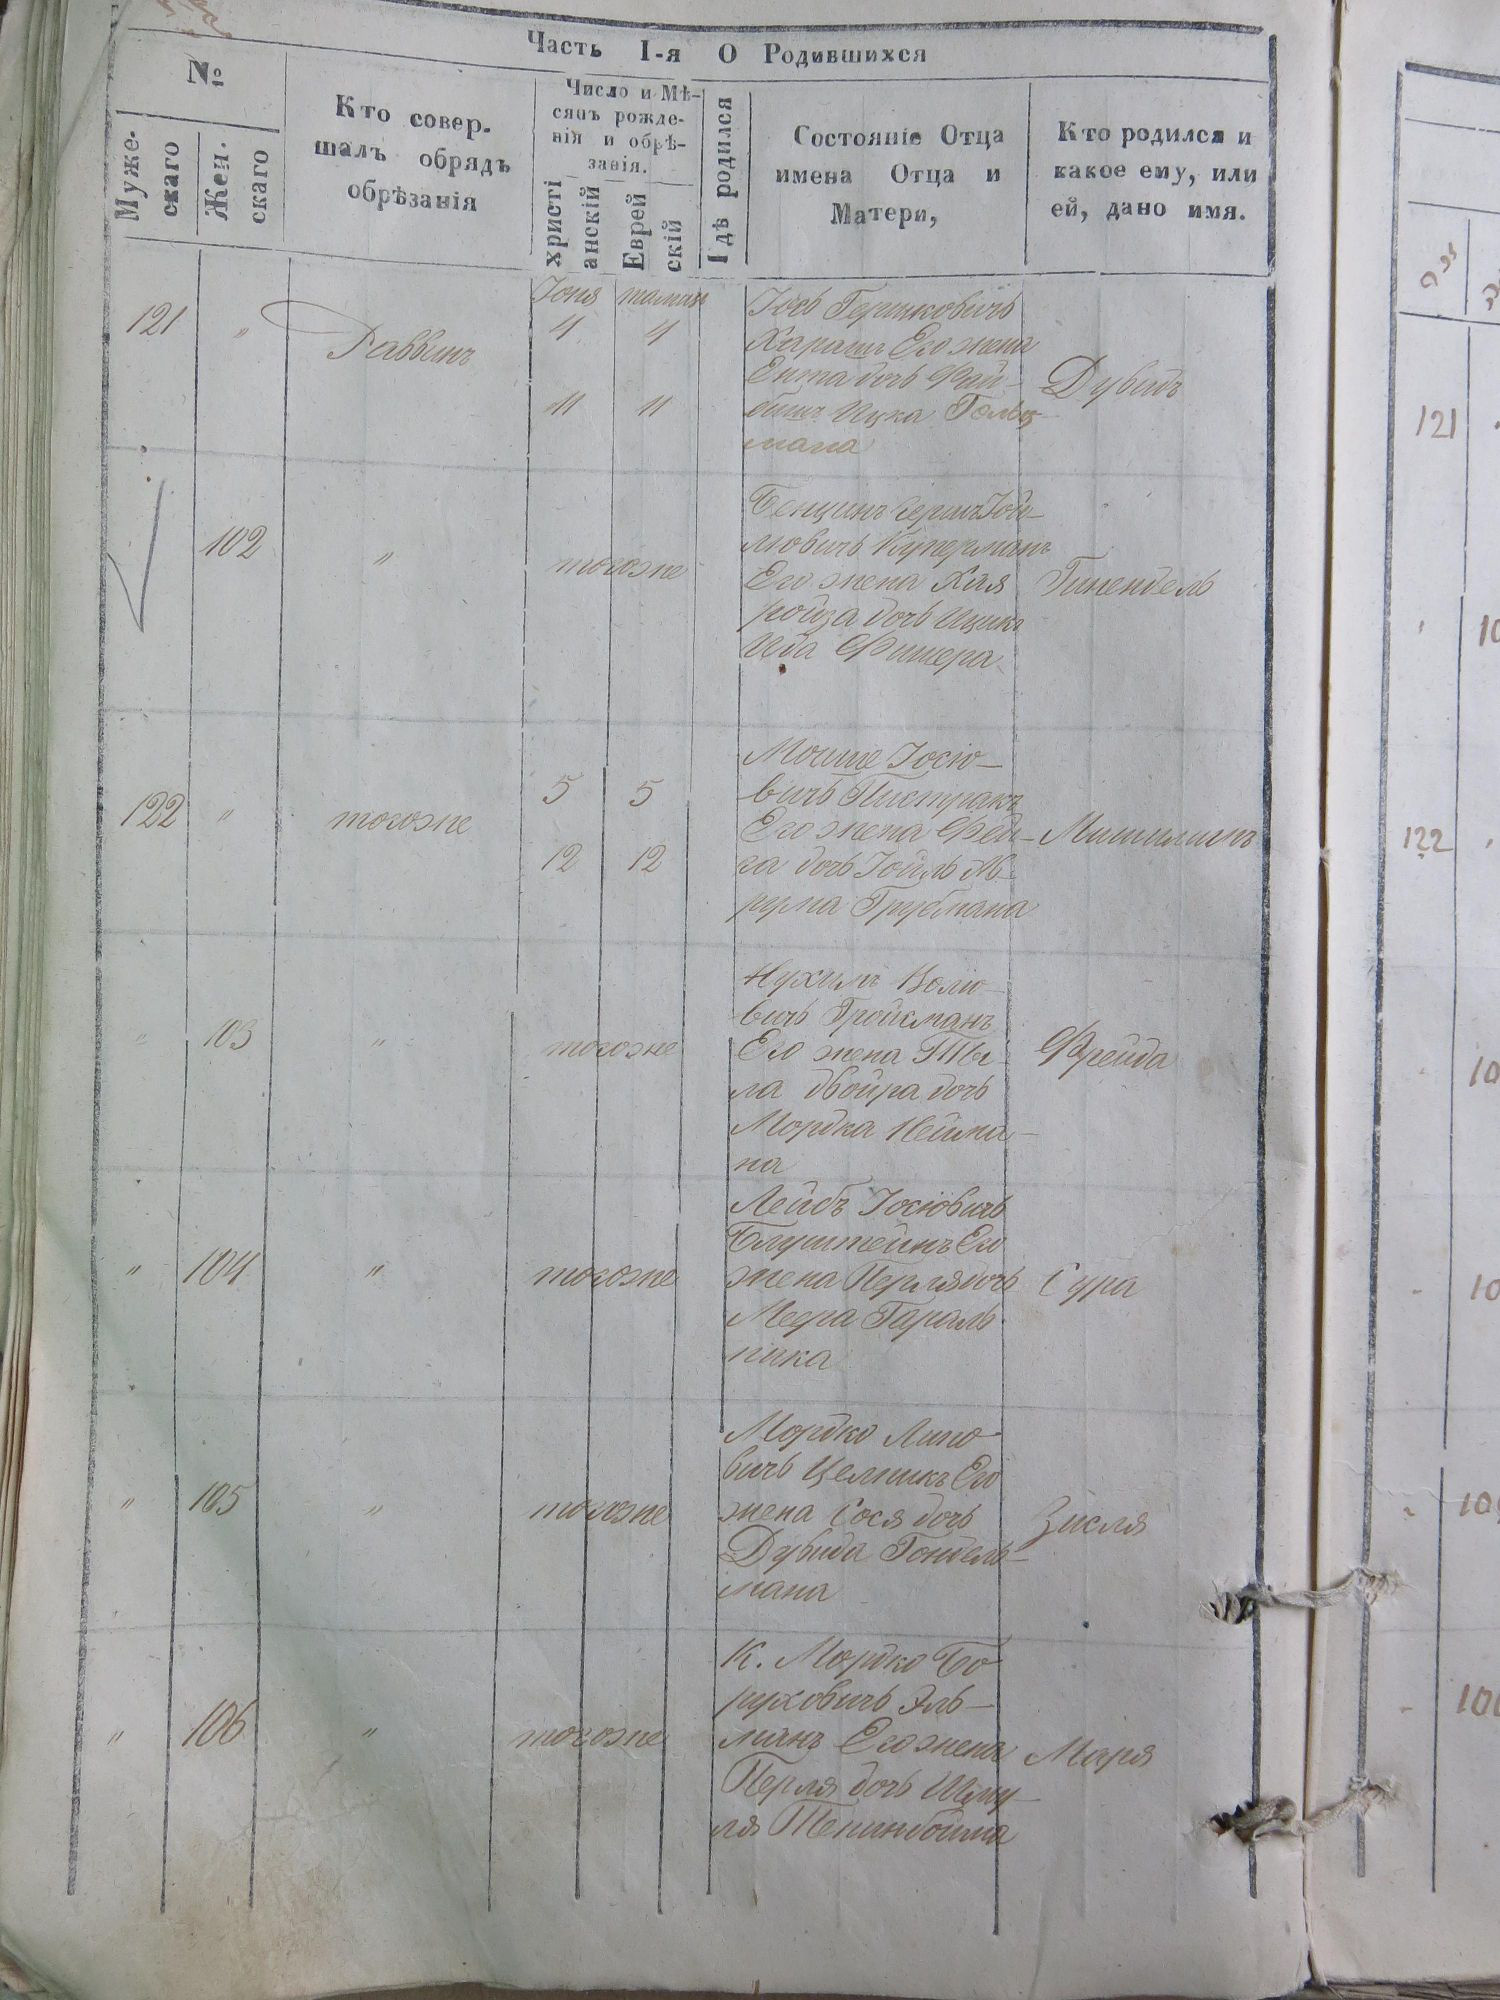 Часть I-я О Родившихся
№
Муже-
скаго
Жен.
скаго
Кто совер-
шалъ обрядъ
обрѣзанія
Число и Мѣ-
сяцъ рожде-
нія и обрѣ-
занія.
христі
анскій
Еврей
скій
Гдѣ родился
Состояніе Отца
имена Отца и
Матери,
Кто родился и
какое ему, или
ей, дано имя.
Іюня
121 " Раввинъ 4 4
11 11
Іось Гершковичъ
Его жена
Ента дочь Фай-
бишъ Ицка Гольц-
мана
Дувидъ
102 " тогоже
Бенцинъ Гершъ Іой-
лювичъ Куперманъ
Его жена Хая
ройза дочь Ицик
Фишера
Гинендель
122 " тогоже 5 5
12 12
Мошие Іосіо-
вичъ Пистракъ
Его жена Фей-
га дочь Іойль Аб-
рума Грубмана
" 103 " тогоже
Нухимъ Волю-
вичъ Гройсманъ
Его жена Ты-
ла двойра дочь
Мордка Нейма-
на
Фрейда
" 104 " тогоже
Лейбъ Іосіовичъ
Блуштейнъ Его
жена Перля дочь
Меера Гараль-
ника
Сура
" 105 " тогоже
Мордко Липо-
вичъ Целникъ Его
жена Сося дочь
Дувида Гондель-
мана
Зисля
" 106 " тогоже
К. Мордко Бо
руховичъ Эль-
манъ Его жена
Перля дочь Шму-
ля Тененбойма
Маря
121
122